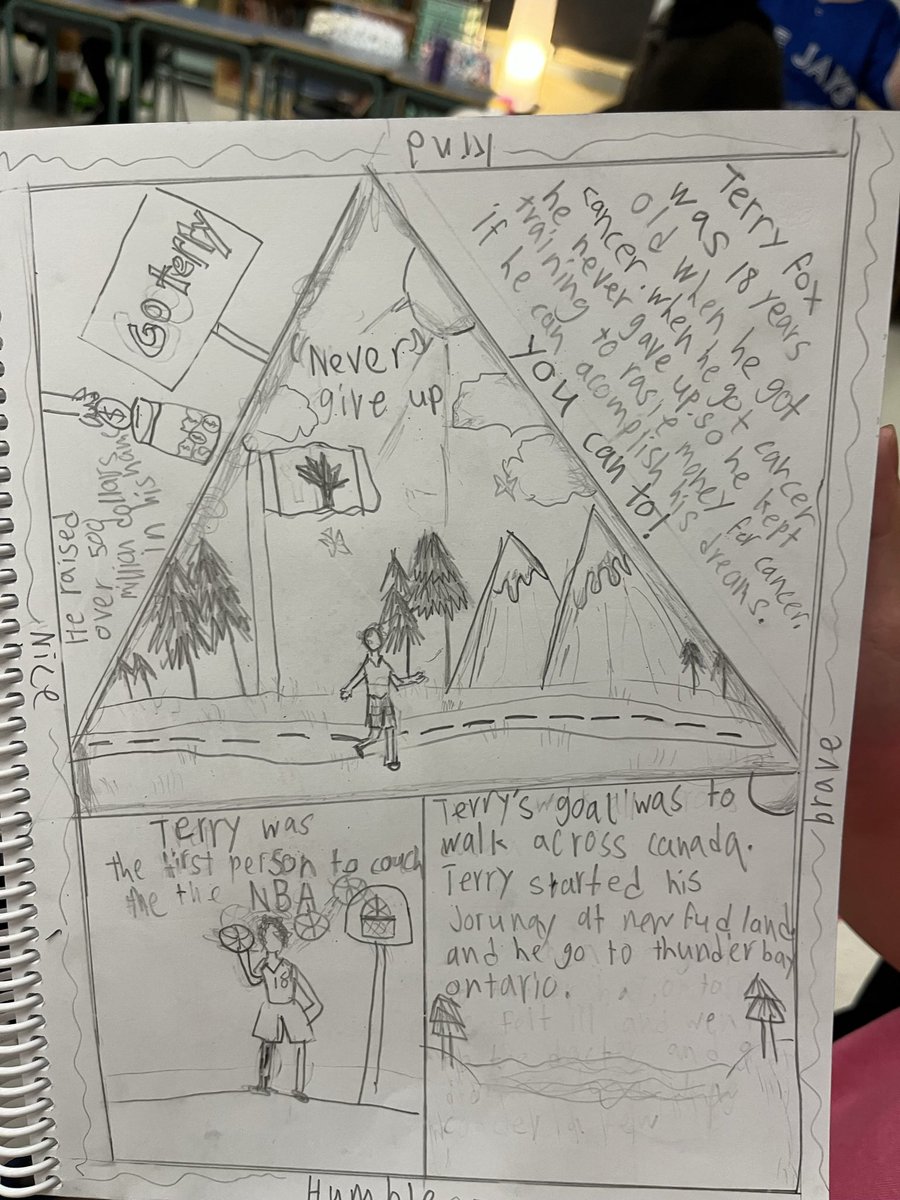 JAYS
kind
Go terry
"Never
give up"
Terry fox
was 18 years
old when he got
cancer. when he got cancer,
he never gave up. so he kept
training to money for cancer.
if he can acomplish his dreams.
you can to!
He raised
over 500
million dollars
in his name
Nice
brave
Terry was
the first person to couch
the NBA
18
Terry's goal was to
walk across canada.
Terry started his
Jorungy at new fud land
and he go to thunderbay
ontario.
Humble